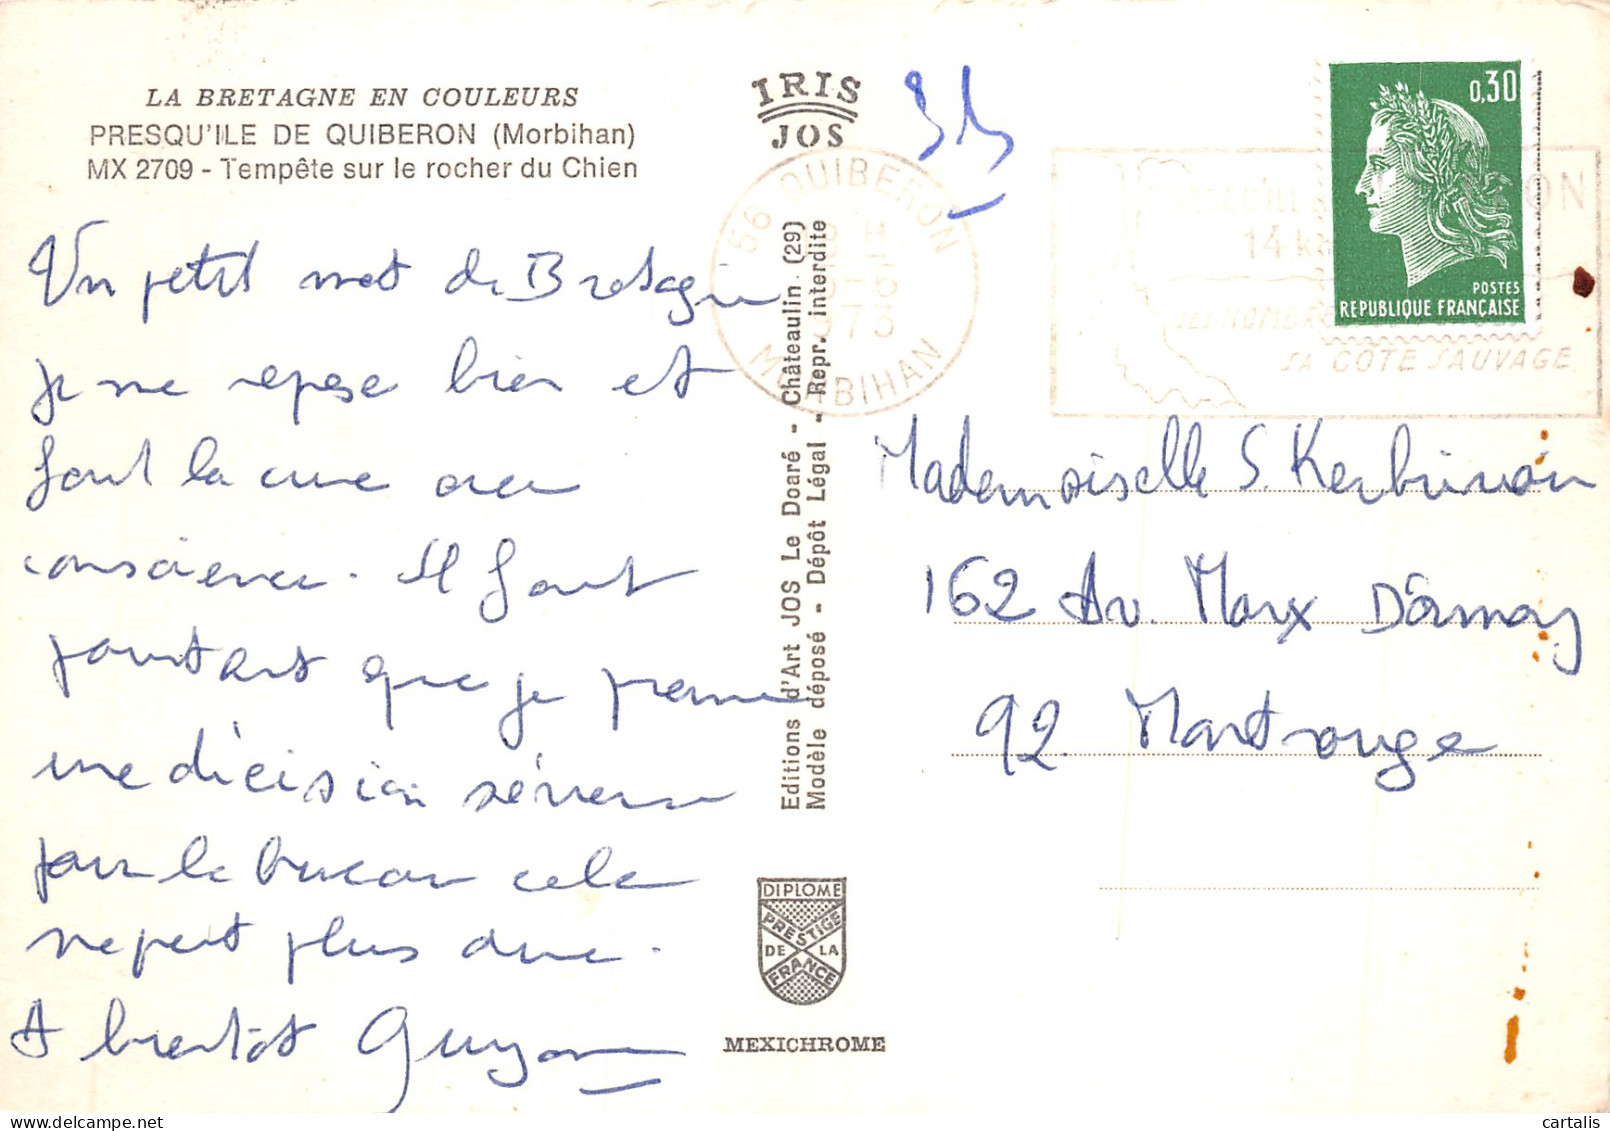 LA BRETAGNE EN COULEURS
PRESQU'ILE DE QUIBERON (Morbihan)
MX 2709 - Tempête sur le rocher du Chien
Un petit mot de Bretagne
je me repose bien et
fait la cure avec
conscience. Il faut
pourtant que je prenne
une décision sérieuse
pour le bureau cela
ne peut plus durer.
A bientôt Guyonne
IRIS
JOS
Editions d'Art JOS Le Doaré - Châteaulin. (29)
Modèle déposé - Dépôt Légal - Repr. interdite
DIPLOME
PRESTIGE
DE LA
FRANCE
MEXICHROME
56 QUIBERON
MORBIHAN
0,30
POSTES
REPUBLIQUE FRANÇAISE
14 k
SA COTE SAUVAGE
Mademoiselle S. Kerbirian
162 Av. Marx Dormoy
92 Montrouge
cartalis